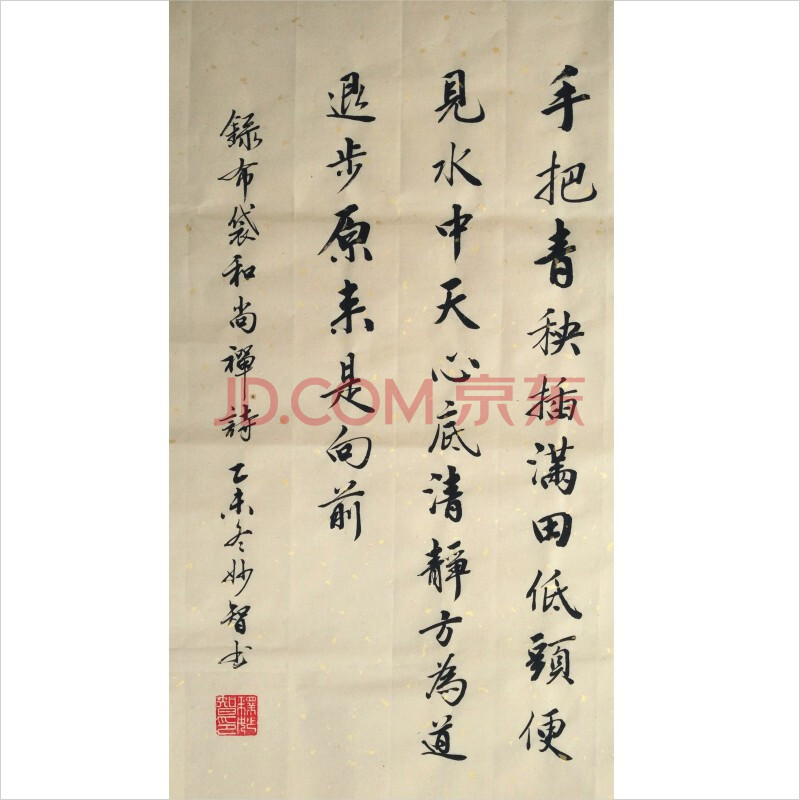 手把青秧插满田低頭便
見水中天心底清靜方為道
退步原来是向前
録布袋和尚禪詩 乙未冬妙智书
JD.COM 京东